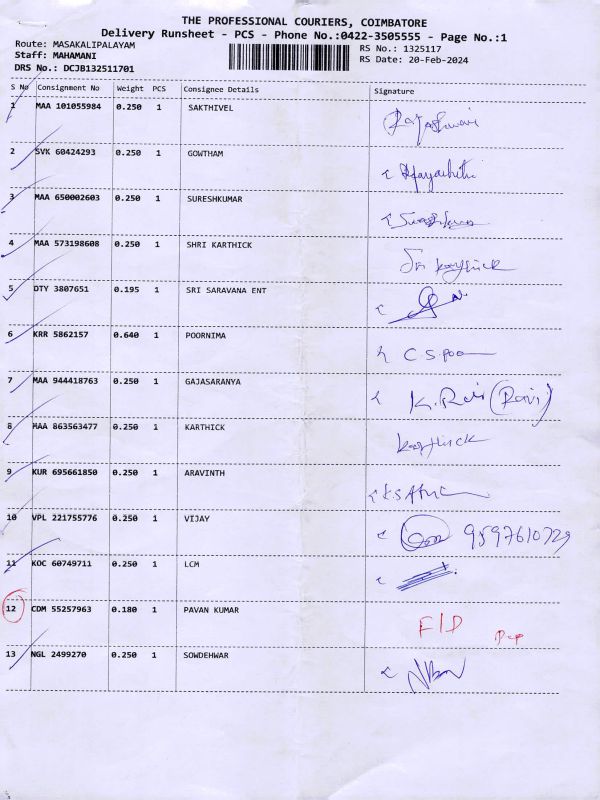 THE PROFESSIONAL COURIERS, COIMBATORE
Delivery Runsheet - PCS - Phone No.:0422-3505555 - Page No.:1
Route: MASAKALIPALAYAM RS No.: 1325117
Staff: MAHAMANI RS Date: 20-Feb-2024
DRS No.: DCJB132511701
S No Consignment No Weight PCS Consignee Details Signature
1 MAA 101055984 0.250 1 SAKTHIVEL
2 SVK 60424293 0.250 1 GOWTHAM
3 MAA 650002603 0.250 1 SURESHKUMAR
4 MAA 573198608 0.250 1 SHRI KARTHICK
5 DTY 3807651 0.195 1 SRI SARAVANA ENT
6 KRR 5862157 0.640 1 POORNIMA
7 MAA 944418763 0.250 1 GAJASARANYA K. Ravi (Ravi)
8 MAA 863563477 0.250 1 KARTHICK Karthick
9 KUR 695661850 0.250 1 ARAVINTH
10 VPL 221755776 0.250 1 VIJAY 9597610729
11 KOC 60749711 0.250 1 LCM
12 CDM 55257963 0.180 1 PAVAN KUMAR F/D
13 NGL 2499270 0.250 1 SOWDEHWAR